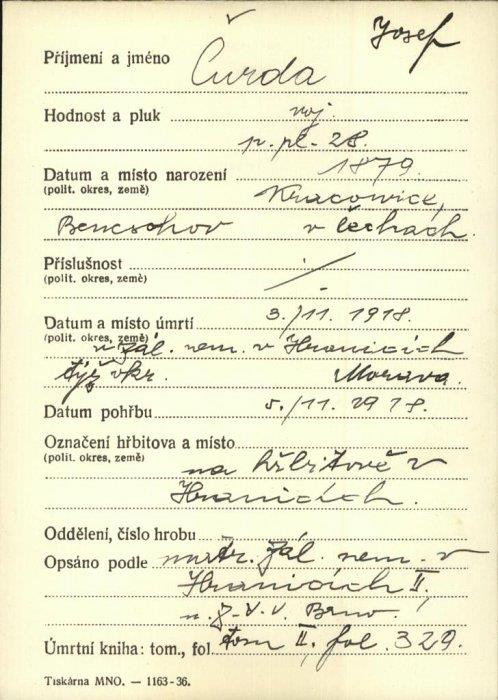 Josef
Příjmení a jméno Čurda
Hodnost a pluk voj.
p. pl. 28.
Datum a místo narození 1879.
(polit. okres, země) Kracowice,
Beneschov v Čechách.
Příslušnost
(polit. okres, země)
Datum a místo úmrtí 3./11. 1918.
(polit. okres, země)
v zál. nem. v Hranicích
týž okr. Morava.
Datum pohřbu 5./11. 1918.
Označení hřbitova a místo
(polit. okres, země)
na hřbitově v
Hranicích.
Oddělení, číslo hrobu
Opsáno podle matr. zál. nem. v
Hranicích II,
Brno.
Úmrtní kniha: tom., fol. tom II, fol. 329.
Tiskárna MNO. — 1163-36.